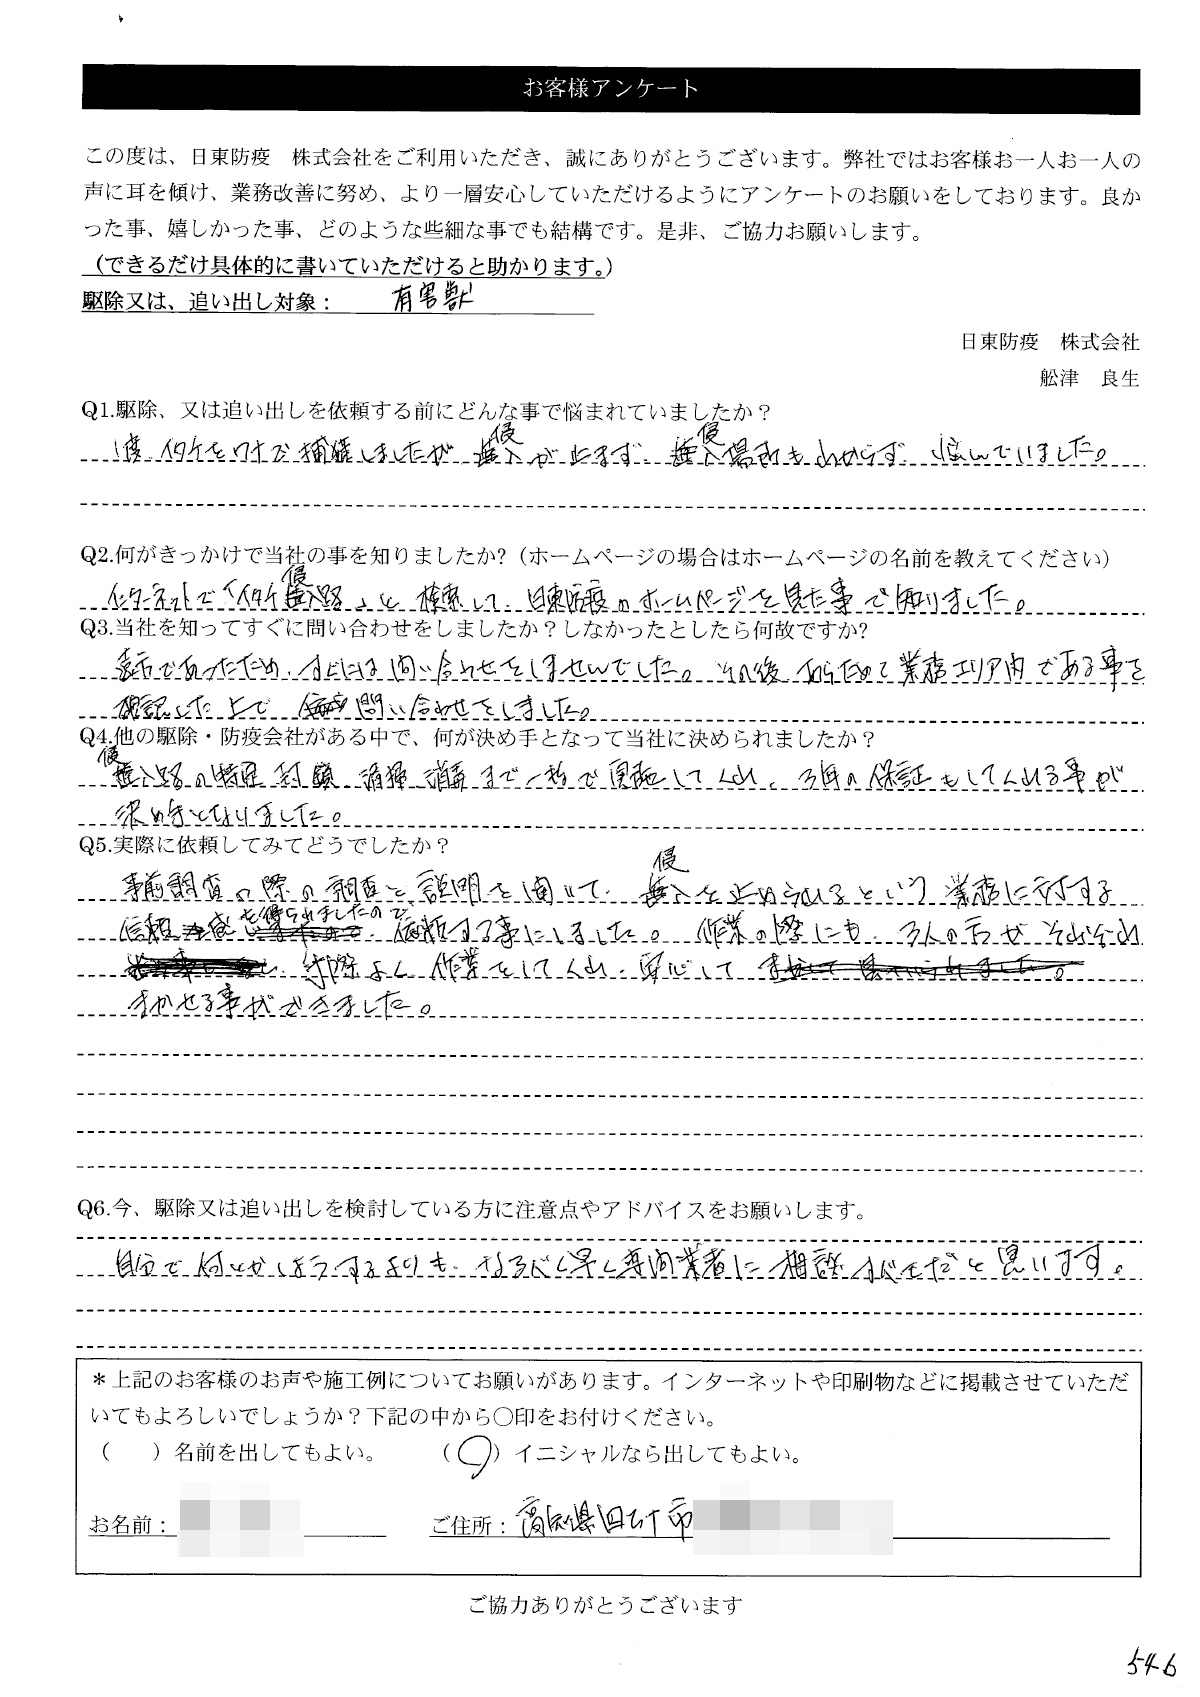 お客様アンケート
この度は、日東防疫 株式会社をご利用いただき、誠にありがとうございます。弊社ではお客様お一人お一人の
声に耳を傾け、業務改善に努め、より一層安心していただけるようにアンケートのお願いをしております。良か
った事、嬉しかった事、どのような些細な事でも結構です。是非、ご協力お願いします。
（できるだけ具体的に書いていただけると助かります。）
駆除又は、追い出し対象： 有害獣
日東防疫 株式会社
舩津 良生
Q1.駆除、又は追い出しを依頼する前にどんな事で悩まれていましたか？
1度、イタチをワナで捕獲しましたが 侵入が止まず、侵入場所も分からず、悩んでいました。
Q2.何がきっかけで当社の事を知りましたか?（ホームページの場合はホームページの名前を教えてください）
インターネットで「イタチ侵入路」と 検索して、日東防疫のホームページを見た事で知りました。
Q3.当社を知ってすぐに問い合わせをしましたか？しなかったとしたら何故ですか?
遠方であったため、すぐには問い合わせをしませんでした。その後 あらためて業務エリア内である事を
確認した上で 問い合わせをしました。
Q4.他の駆除・防疫会社がある中で、何が決め手となって当社に決められましたか？
侵入路の特定、封鎖、清掃、消毒まで一括で実施してくれ、3年の保証もしてくれる事が
決め手となりました。
Q5.実際に依頼してみてどうでしたか？
事前調査の際の調査と説明を聞いて、侵入を止められるという業務に対する
信頼感を得られましたので、依頼する事にしました。作業の際にも、3人の方がそれぞれ
手際よく作業をしてくれ、安心して
まかせる事ができました。
Q6.今、駆除又は追い出しを検討している方に注意点やアドバイスをお願いします。
自分で何とかしようするよりも、なるべく早く専門業者に相談すべきだと思います。
＊上記のお客様のお声や施工例についてお願いがあります。インターネットや印刷物などに掲載させていただ
いてもよろしいでしょうか？下記の中から〇印をお付けください。
（ ）名前を出してもよい。 （〇）イニシャルなら出してもよい。
お名前： ご住所：高知県四万十市
ご協力ありがとうございます
546